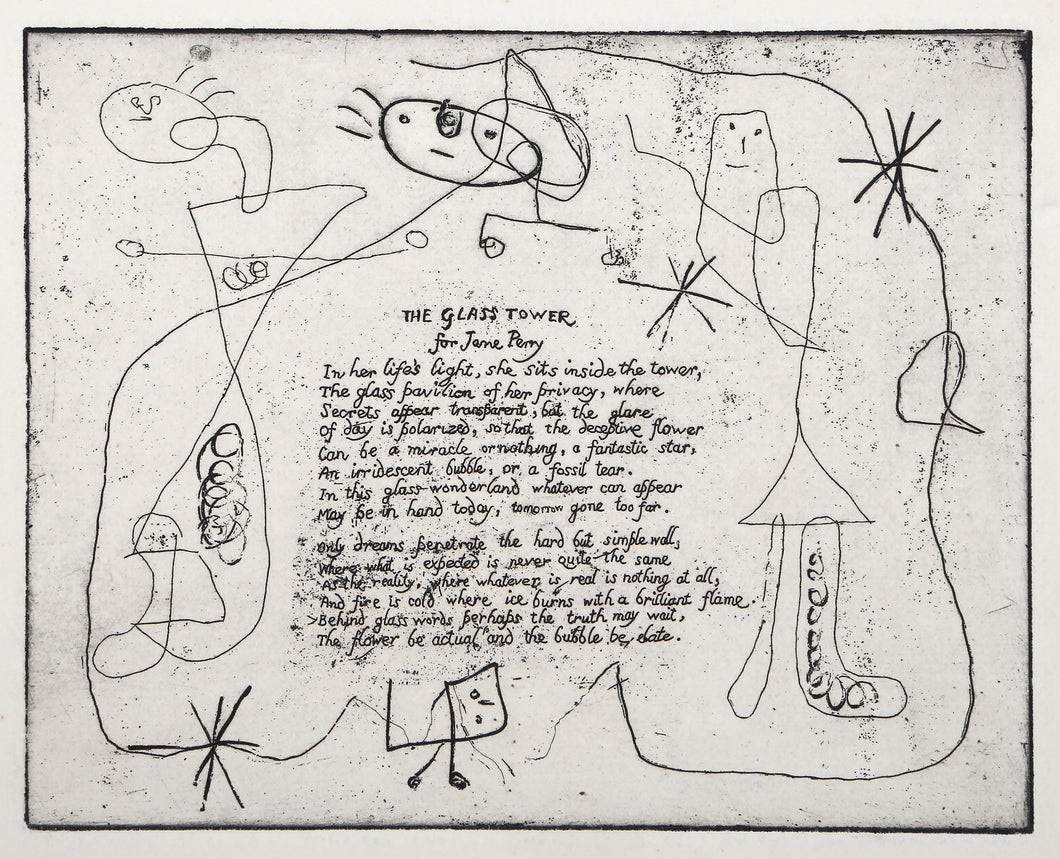 THE GLASS TOWER
for Jane Perry
In her life's light, she sits inside the tower,
The glass pavilion of her privacy, where
Secrets appear transparent, but the glare
Of day is polarized, so that the deceptive flower
Can be a miracle or nothing, a fantastic star,
An irridescent bubble, or a fossil tear.
In this glass wonderland whatever can appear
May be in hand today, tomorrow gone too far.
Only dreams penetrate the hard but simple wall,
Where what is expected is never quite the same
As the reality, where whatever is real is nothing at all,
And fire is cold where ice burns with a brilliant flame.
Behind glass words perhaps the truth may wait,
The flower be actual and the bubble be